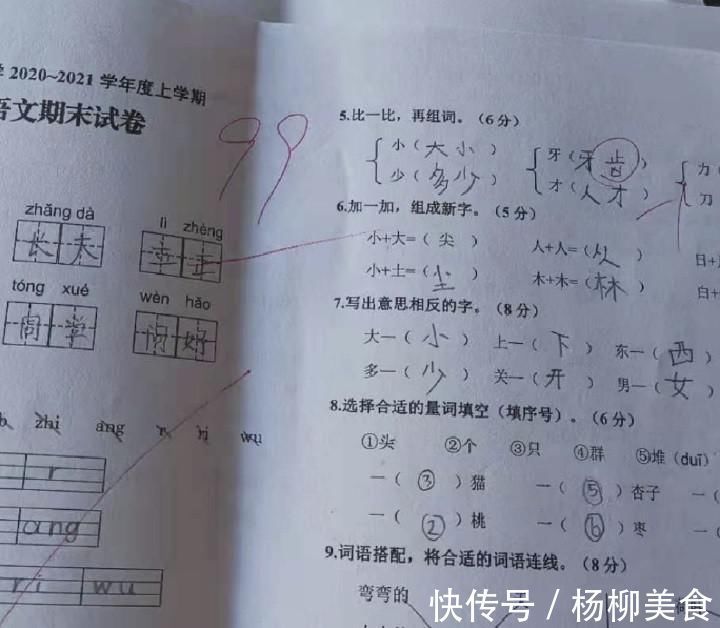 学 2020~2021 学年度上学期
语文期末试卷
99
zhǎng dà
长大
lì zhèng
tóng xué
同学
wèn hǎo
问好
zhi ang n ri wu
r
ang
ri wu
5.比一比，再组词。（6分）
小（大小） 牙（牙齿） 力（
少（多少） 才（人才） 刀
6.加一加，组成新字。（5分）
小+大=（尖） 人+人=（从） 日+
小+土=（尘） 木+木=（林） 白+
7.写出意思相反的字。（8分）
大—（小） 上—（下） 东—（西）
多—（少） 关—（开） 男—（女）
8.选择合适的量词填空（填序号）。（6分）
①头 ②个 ③只 ④群 ⑤堆（duī）
一（③）猫 一（⑤）杏子 一（
一（②）桃 一（⑥）枣 一（
9.词语搭配，将合适的词语连线。（8分）
弯弯的
快传号 / 杨柳美食